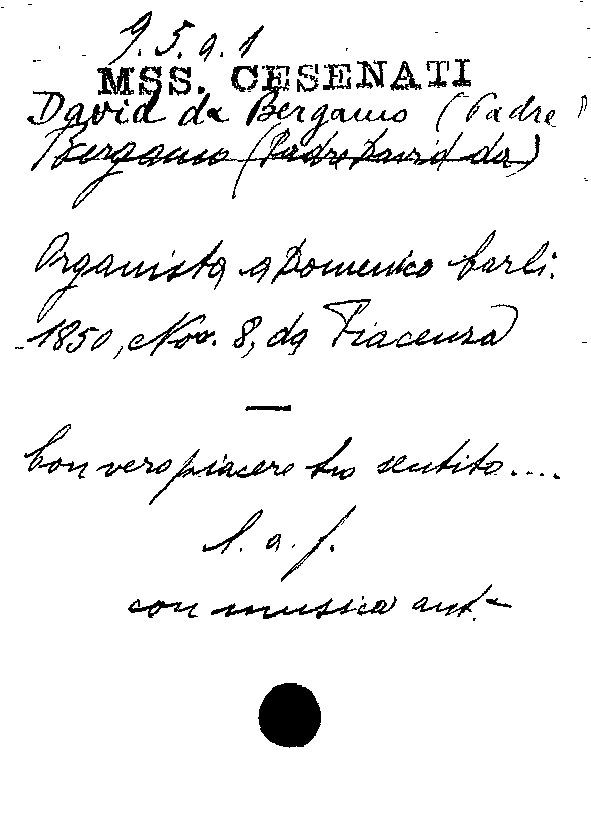 9.5.9.1
MSS. CESENATI
David da Bergamo (Padre)
Bergamo (Padre David da)
Organista a Domenico Carli.
1850, Nov. 8, da Piacenza
—
Con vero piacere ho sentito....
l. a. f.
con musica aut.